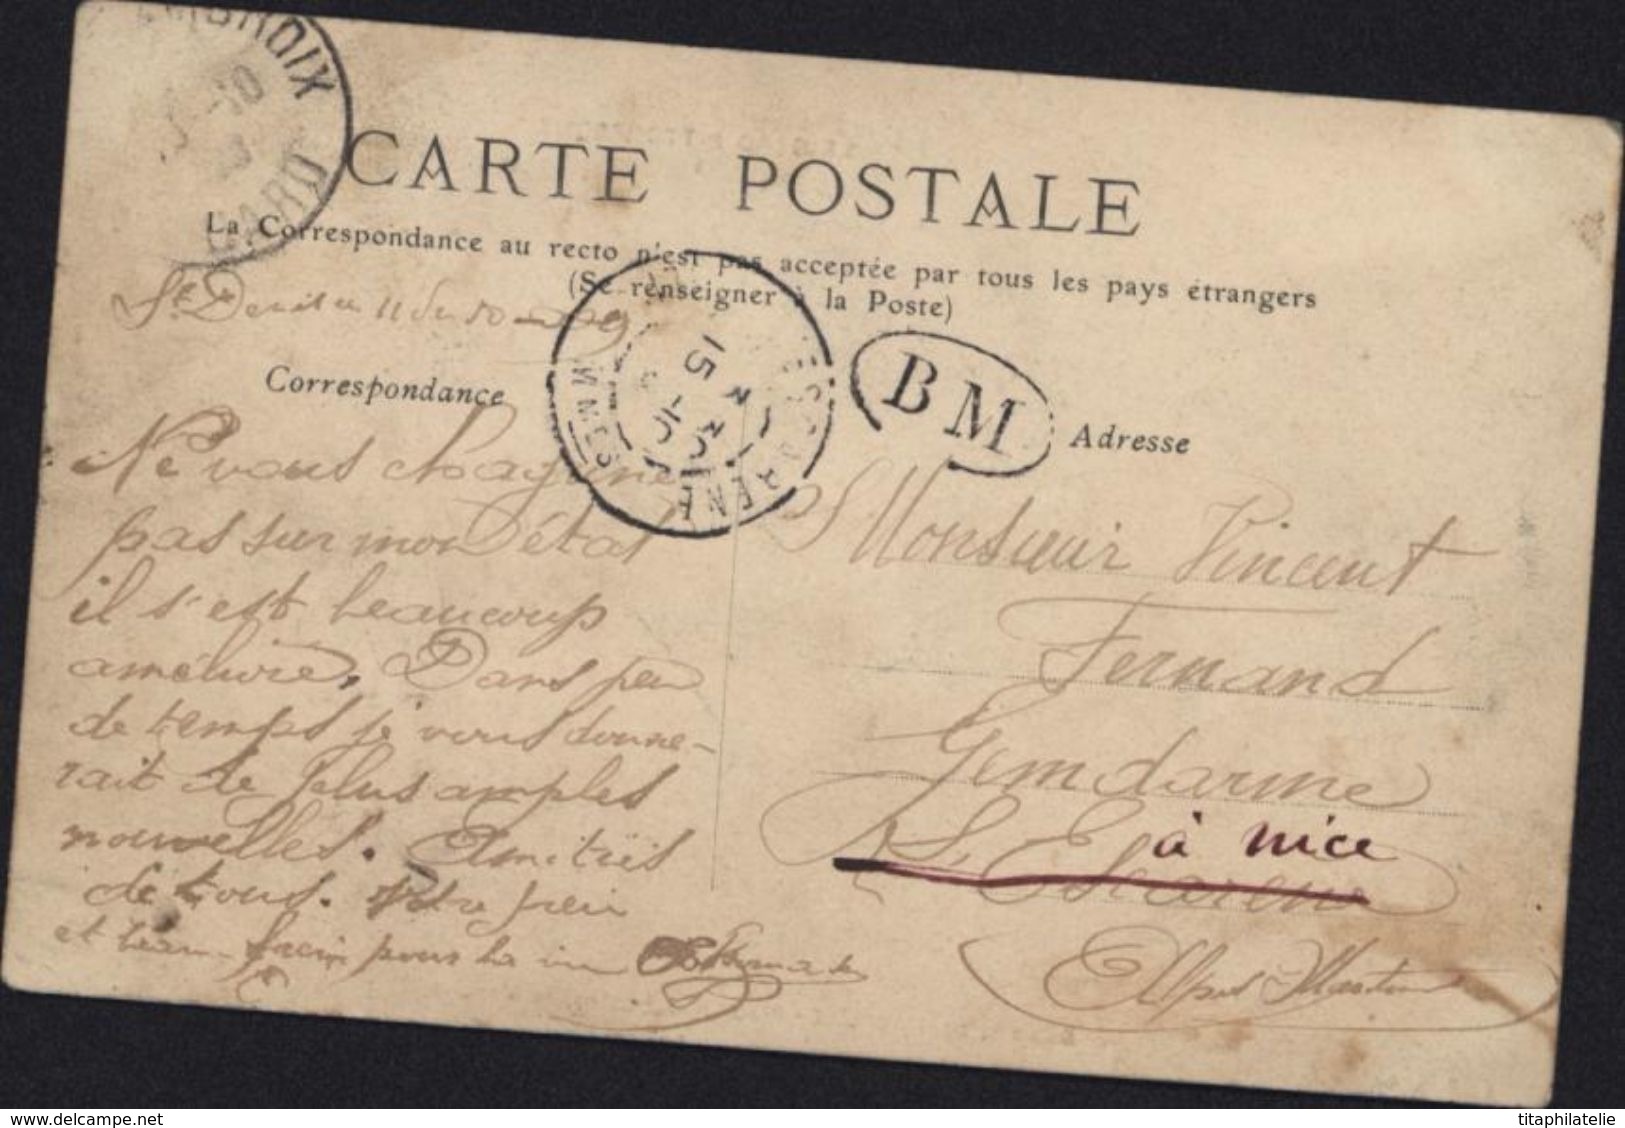 GARD
CARTE POSTALE
La Correspondance au recto n'est pas acceptée par tous les pays étrangers
(Se renseigner à la Poste)
St Denis
Correspondance
BM
Adresse
Ne vous chagriné
pas sur mon état
il s'est beaucoup
améliorè. Dans peu
de temps je vous donne-
rait de plus amples
nouvelles. Amitiés
de tous. Votre
et beau-frère pour la vie
Monsieur Vincent
Fernand
Gendarme
à nice
L'Escarène
Alpes-Maritimes
www.delcampe.net
titaphilatelie